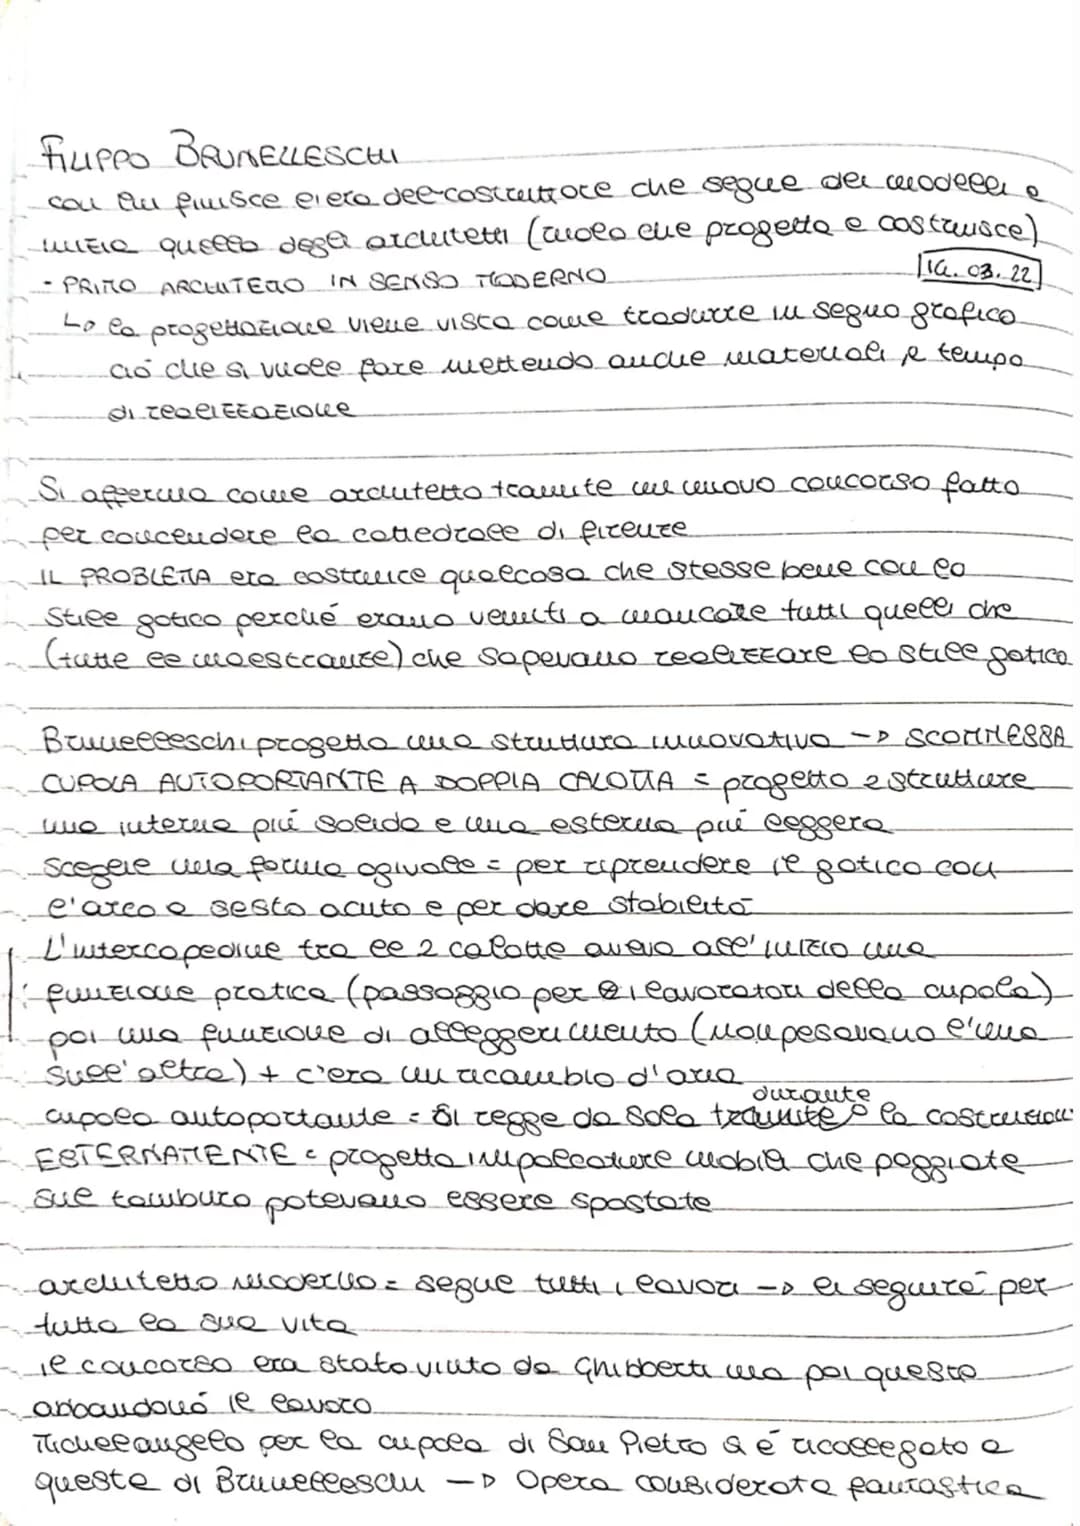 FILIPPO BRUNELLESCHI
con lui finisce l'era del costruttore che segue dei modelli e
inizia quella degli architetti (ruolo che progetta e costruisce)
- PRIMO ARCHITETTO IN SENSO MODERNO
14.03.22
↳ la progettazione viene vista come tradurre in segno grafico
ciò che si vuole fare mettendo anche materiali e tempo
di realizzazione
Si afferma come architetto tramite un nuovo concorso fatto
per concludere la cattedrale di firenze
IL PROBLEMA era costruire qualcosa che stesse bene con lo
stile gotico perché erano venuti a mancare tutti quelli che
(tutte le maestranze) che sapevano realizzare lo stile gotico
Brunelleschi progetta una struttura innovativa -> SCOMMESSA
CUPOLA AUTOPORTANTE A DOPPIA CALOTTA = progetta 2 strutture
una interna più solida e una esterna più leggera
sceglie una forma ogivale = per riprendere il gotico con
l'arco a sesto acuto e per dare stabilità
L'intercapedine tra le 2 calotte aveva all'inizio una
funzione pratica (passaggio per i lavoratori della cupola)
poi una funzione di alleggerimento (non pesavano l'una
sull'altra) + c'era un ricambio d'aria
durante
cupola autoportante = si regge da sola tramite la costruzione
ESTERNAMENTE = progetta impalcature mobili che poggiate
sul tamburo potevano essere spostate
architetto moderno = segue tutti i lavori -> li seguirà per
tutta la sua vita
il concorso era stato vinto da Ghibberti ma poi questo
abbandonò il lavoro
Michelangelo per la cupola di San Pietro si è ricollegato a
questa di Brunelleschi -> Opera considerata fantastica